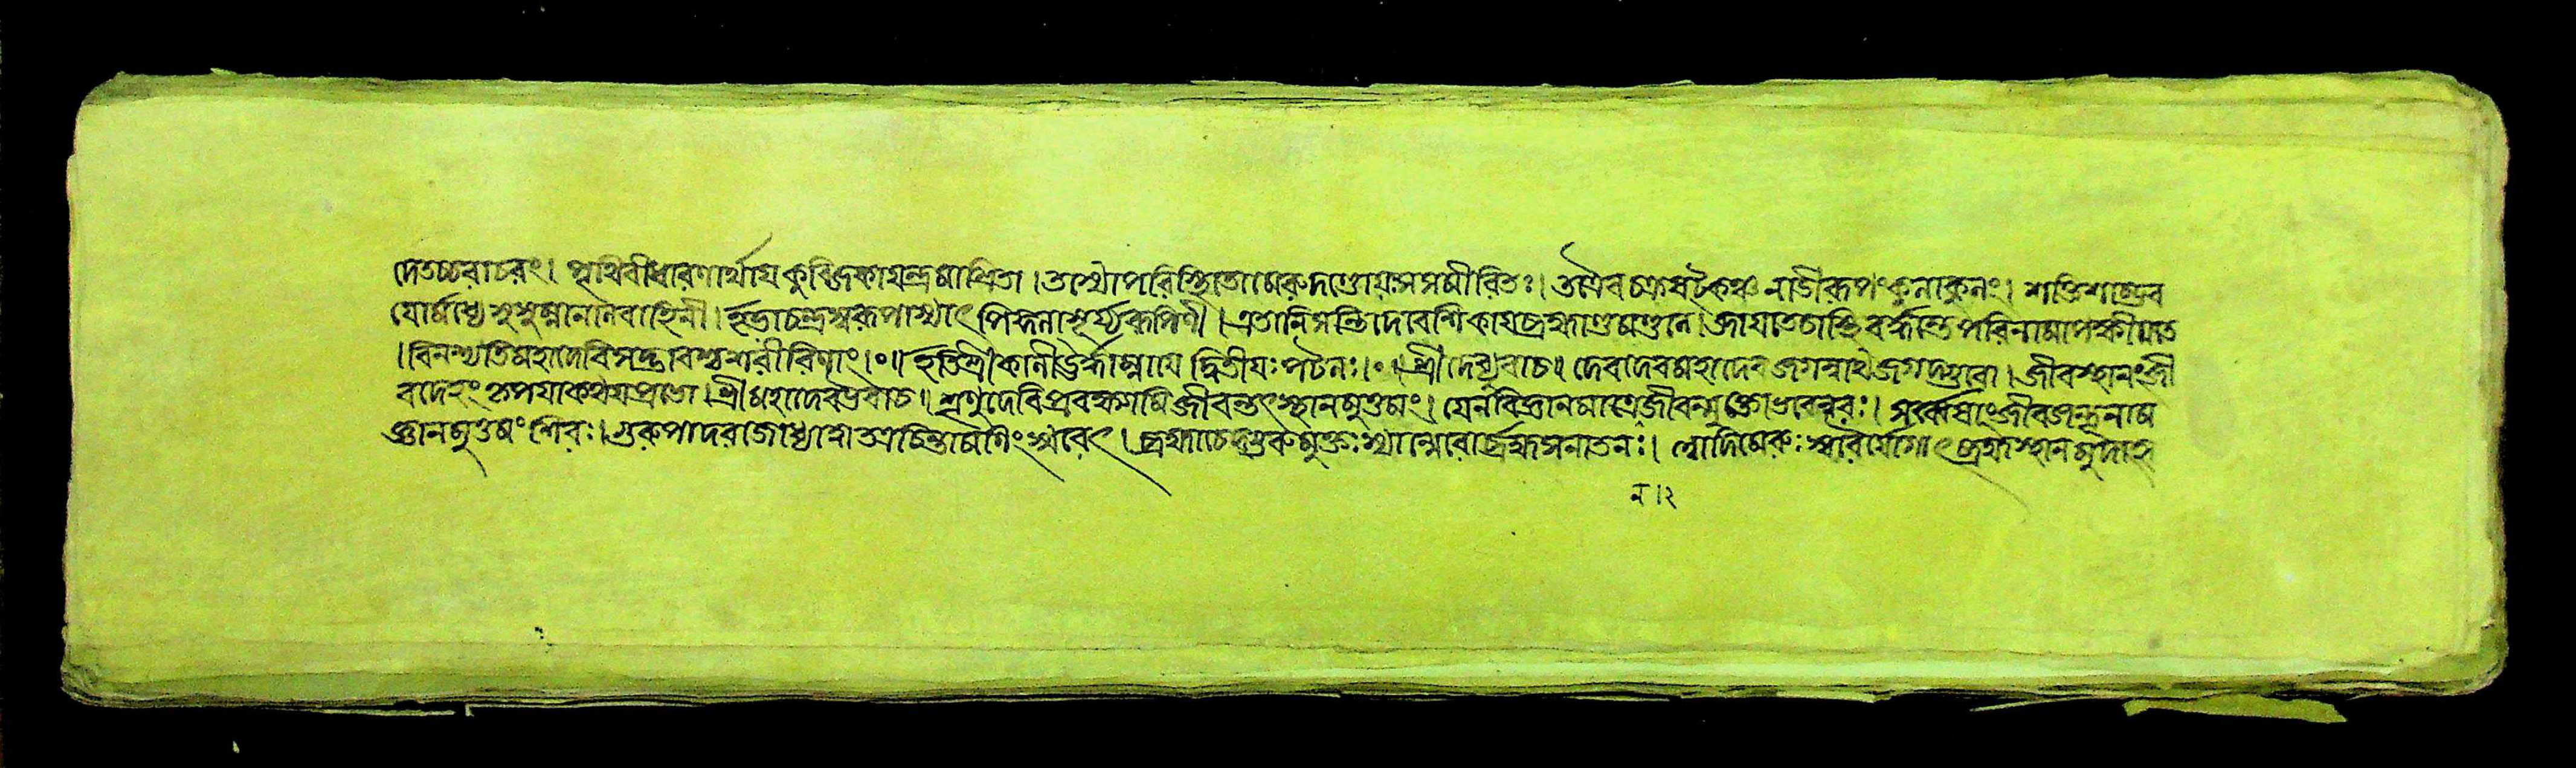 দেতচ্চরাচরং। পৃথিবীধারণার্থায়কুব্জিকায়ন্দ্রমাশ্রিতা। তস্যোপরিস্থিতো মেরুদণ্ডোয়ঃসসমীরিতঃ। তত্রৈবচক্রষট্কঞ্চ নাডীরূপংকুলাকুলং। শক্তিশম্ভুব
যোর্মধ্যেসুষুম্নানলবাহিনী। ইডাচন্দ্রস্বরূপাস্যাৎ পিঙ্গলাসূর্য্যরূপিণী। এতানিসন্তিদেবেশিকায়ব্রহ্মাণ্ডমণ্ডলে। জায়তেচাস্থিবর্দ্ধন্তেপরিণামাপক্ষীয়তে
।বিনশ্যতিমহাদেবিসদ্ভাবশ্চশরীরিণাং।০॥ ইতিশ্রীকালীঊর্দ্ধাম্নায়ে দ্বিতীয়ঃপটলঃ।০॥ শ্রীদেব্যুবাচ॥ দেবদেবমহাদেব জগন্নাথজগদ্গুরো। জীবস্থানংজী
বদেহং কৃপয়াকথয়প্রভো। শ্রীমহাদেবউবাচ॥ শৃণুদেবিপ্রবক্ষ্যামি জীবন্তৎস্থানমুত্তমং। যেনবিজ্ঞানমাত্রেণজীবন্মুক্তোভবেন্নরঃ। সর্ব্বেষাংজীবজন্তূনাম
ণ্ডানমুত্তমং শিরঃ। গুরুপাদরজোধ্যাত্বা অচিন্তামণিং স্মরেৎ। ব্রহ্মাচেদ্গুরুমুক্তঃস্যান্মেরোর্ব্রহ্মসনাতনঃ। লোদিমেরুঃস্মরেযোগাৎ ব্রহ্মস্থানমুদাহৃ
ন।২